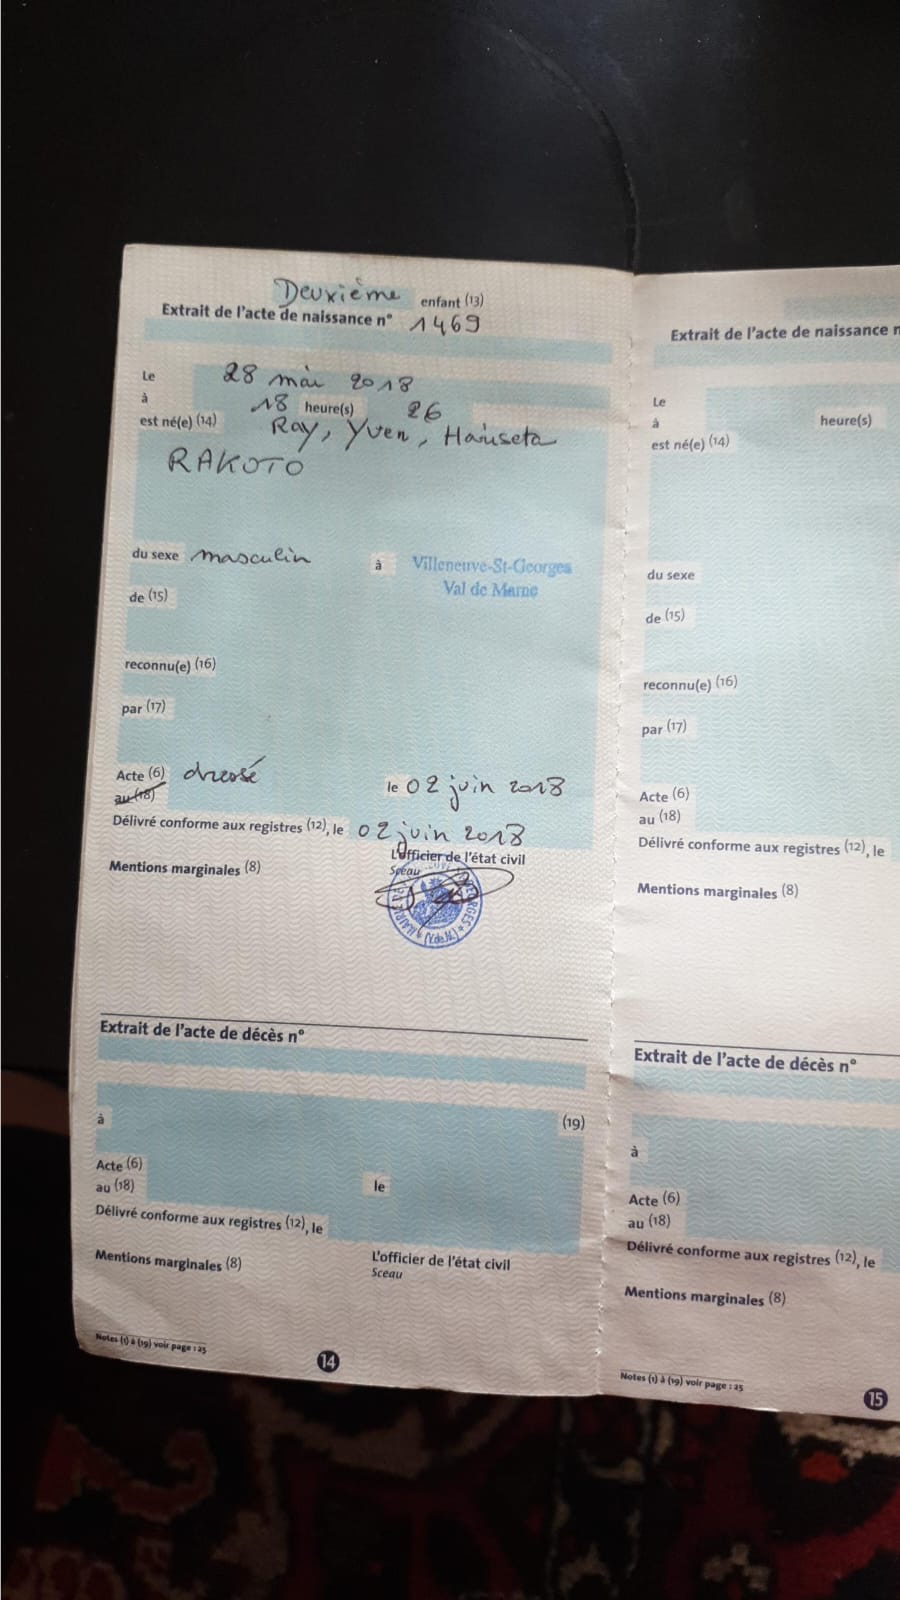 Deuxième enfant (13)
Extrait de l'acte de naissance n° 1469
Le 28 mai 2018
à 18 heure(s) 26
est né(e) (14) Ray, Yven,
RAKOTO
du sexe masculin à Villeneuve-St-Georges
Val de Marne
de (15)
reconnu(e) (16)
par (17)
Acte (6) dressé le 02 juin 2018
au (18)
Délivré conforme aux registres (12), le 02 juin 2018
L'officier de l'état civil
Sceau
Mentions marginales (8)
Extrait de l'acte de décès n°
à (19)
Acte (6)
au (18) le
Délivré conforme aux registres (12), le
L'officier de l'état civil
Sceau
Mentions marginales (8)
Notes (1) à (19) voir page : 25
14
Extrait de l'acte de naissance
Le
à heure(s)
est né(e) (14)
du sexe
de (15)
reconnu(e) (16)
par (17)
Acte (6)
au (18)
Délivré conforme aux registres (12), le
Mentions marginales (8)
Extrait de l'acte de décès n°
à
Acte (6)
au (18)
Délivré conforme aux registres (12), le
Mentions marginales (8)
Notes (1) à (19) voir page : 25
15